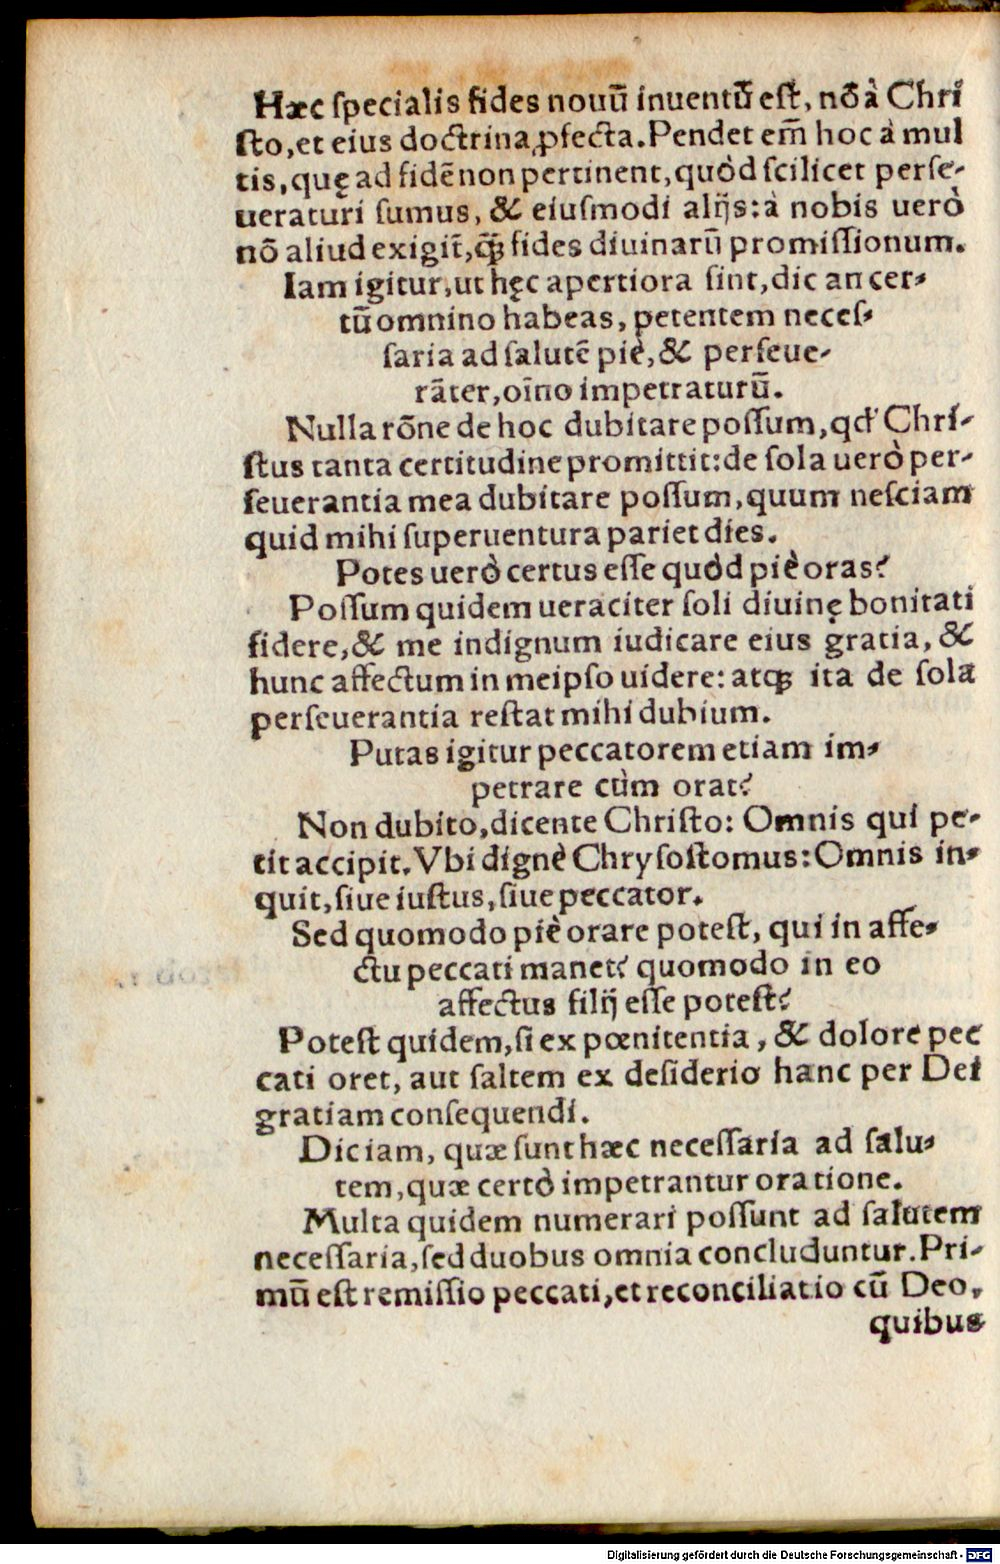 Hæc ſpecialis fides nouũ inuentũ eſt, nõ à Chri
ſto, et eius doctrina ꝓfecta. Pendet em̃ hoc à mul
tis, quę ad fidẽ non pertinent, quòd ſcilicet perſe-
ueraturi ſumus, & eiuſmodi alijs: à nobis uerò
nõ aliud exigit̃, q̈̃ꝫ fides diuinarũ promiſſionum.
Iam igitur, ut hęc apertiora ſint, dic an cer-
tũ omnino habeas, petentem neceſ-
ſaria ad ſalutẽ piè, & perſeue-
rãter, oĩno impetraturũ.
Nulla rõne de hoc dubitare poſſum, qđ Chri-
ſtus tanta certitudine promittit: de ſola uerò per-
ſeuerantia mea dubitare poſſum, quum neſciam
quid mihi ſuperuentura pariet dies.
Potes uerò certus eſſe quòd piè oras?
Poſſum quidem ueraciter ſoli diuinę bonitati
fidere, & me indignum iudicare eius gratia, &
hunc affectum in meipſo uidere: atqꝫ ita de ſola
perſeuerantia reſtat mihi dubium.
Putas igitur peccatorem etiam im-
petrare cùm orat?
Non dubito, dicente Chriſto: Omnis qui pe-
tit accipit. Vbi dignè Chryſoſtomus: Omnis in-
quit, ſiue iuſtus, ſiue peccator.
Sed quomodo piè orare poteſt, qui in affe-
ctu peccati manet? quomodo in eo
affectus filij eſſe poteſt?
Poteſt quidem, ſi ex pœnitentia, & dolore pec
cati oret, aut ſaltem ex deſiderio hanc per Dei
gratiam conſequendi.
Dic iam, quæ ſunt hæc neceſſaria ad ſalu-
tem, quæ certò impetrantur oratione.
Multa quidem numerari poſſunt ad ſalutem
neceſſaria, ſed duobus omnia concluduntur. Pri-
mũ eſt remiſſio peccati, et reconciliatio cũ Deo,
quibus
Digitalisierung gefördert durch die Deutsche Forschungsgemeinschaft - DFG